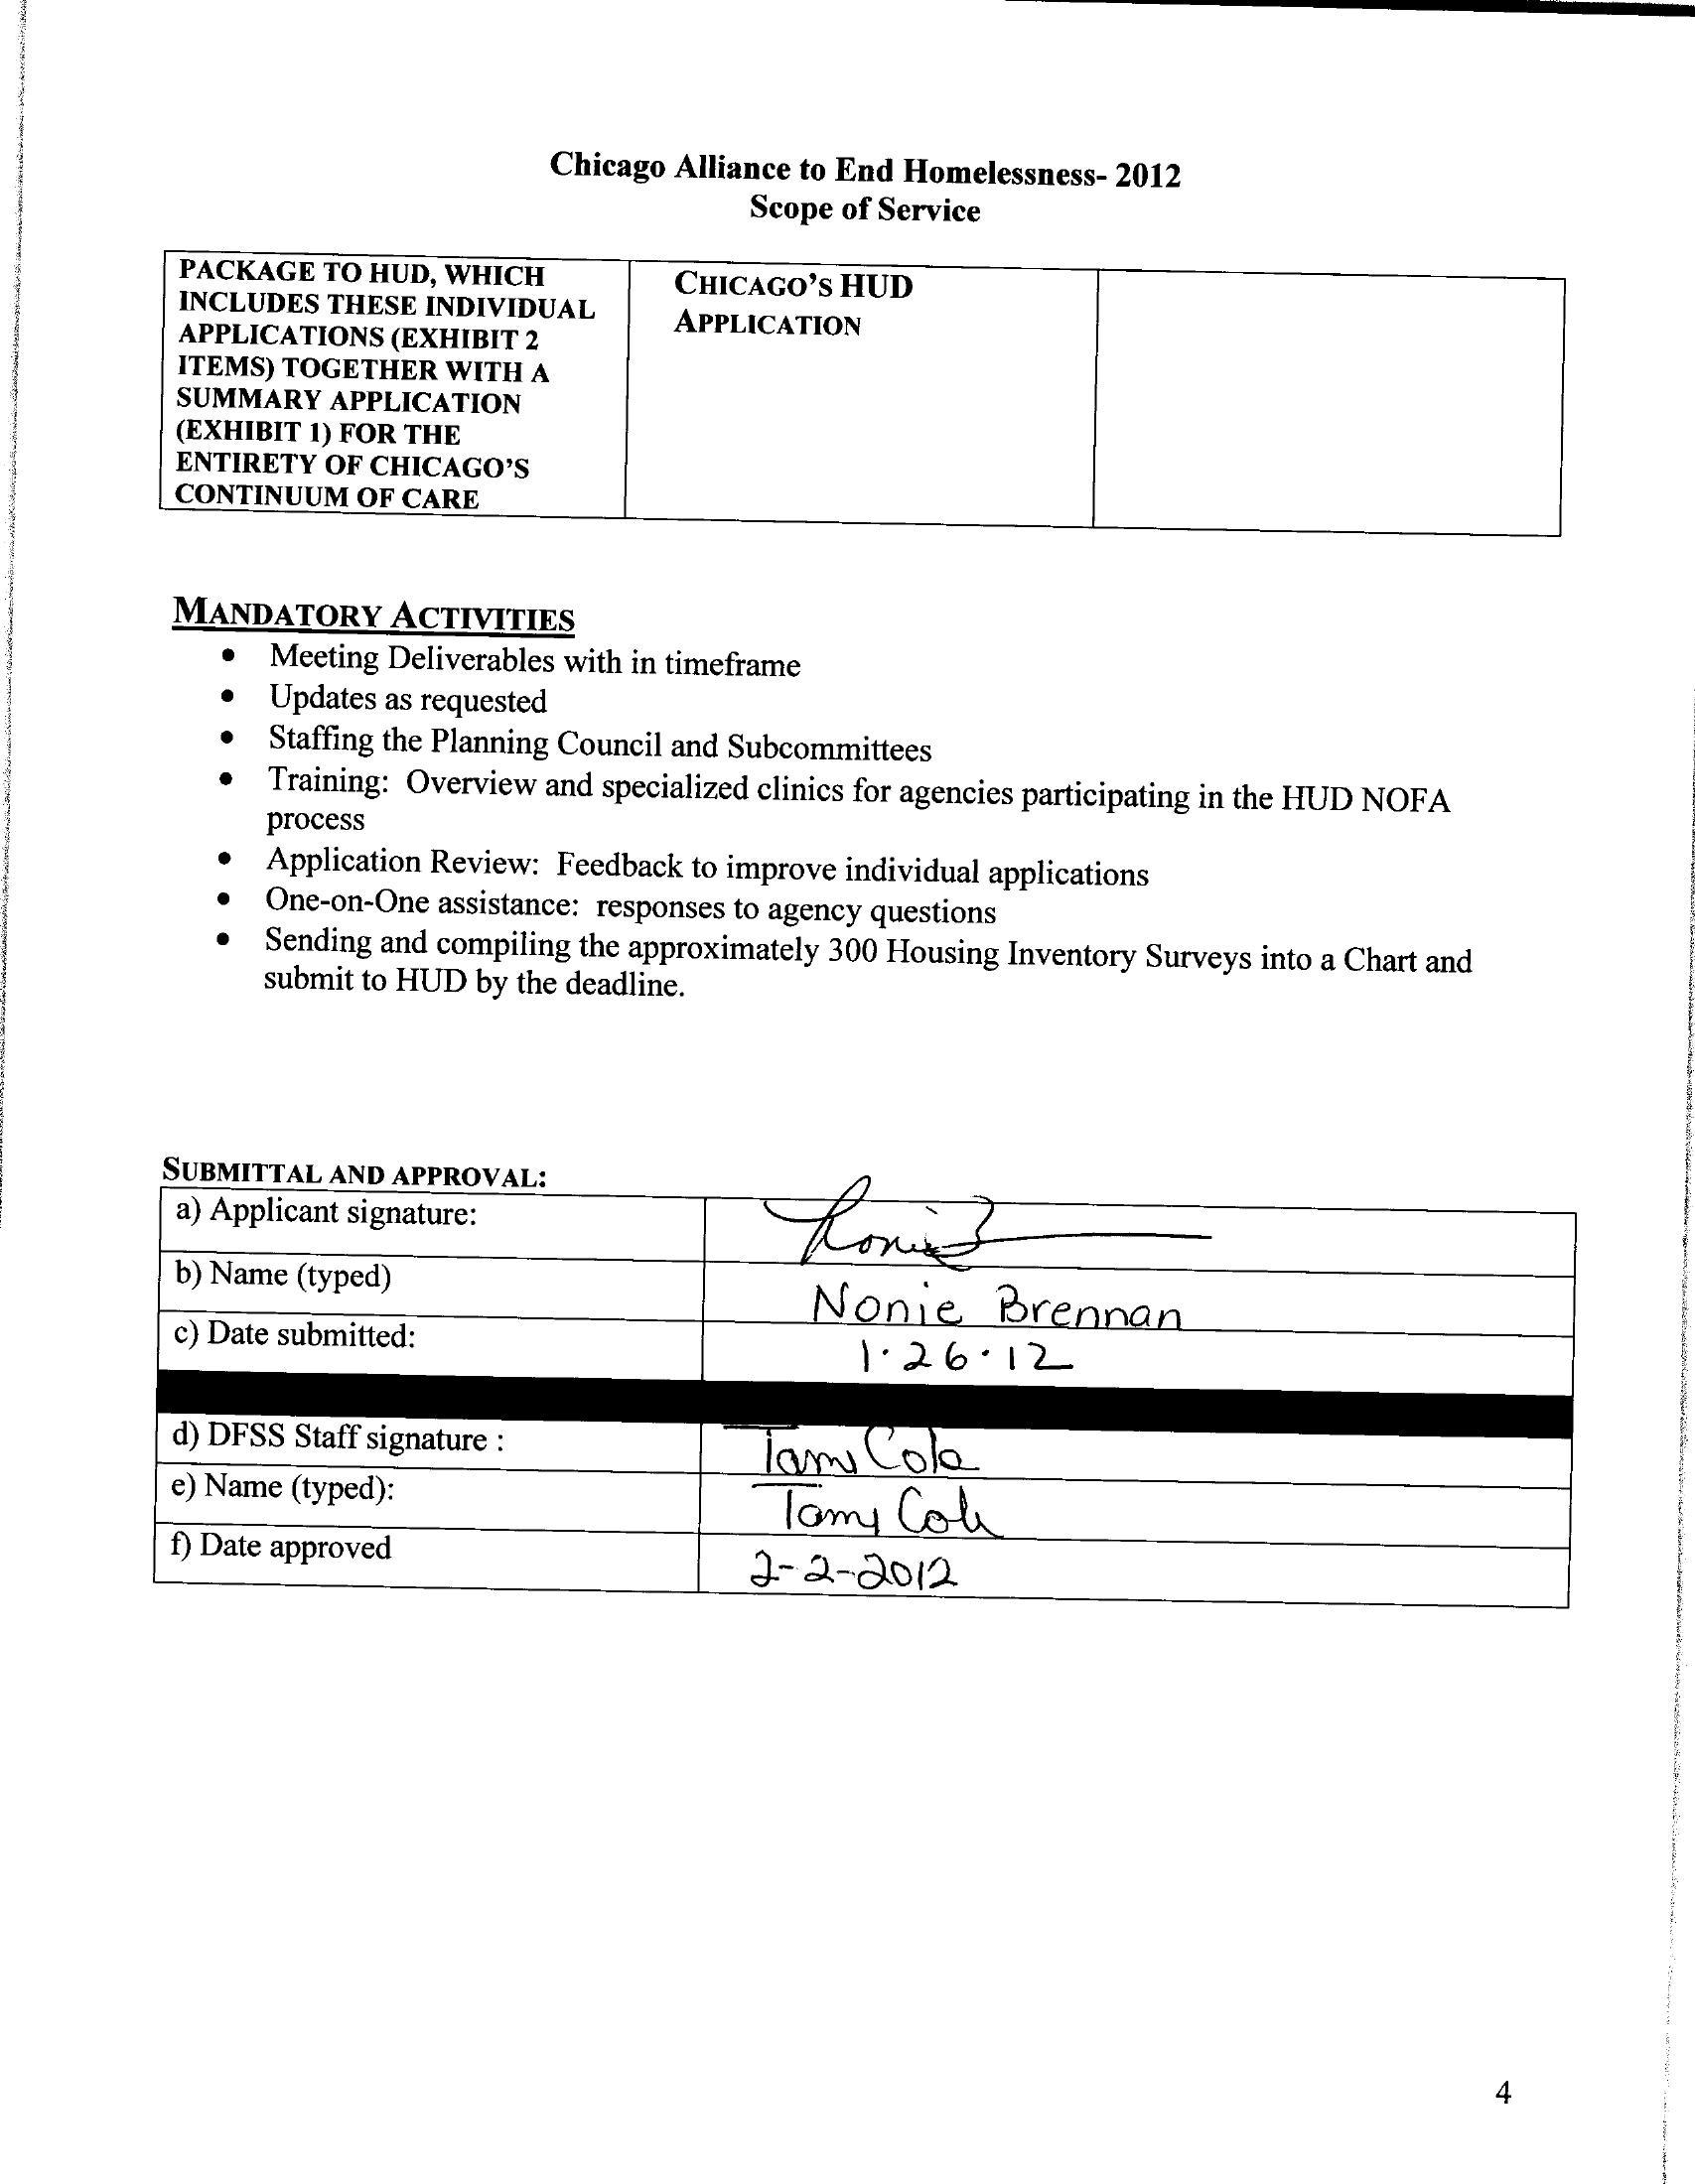 Chicago Alliance to End Homelessness- 2012
Scope of Service
PACKAGE TO HUD, WHICH
INCLUDES THESE INDIVIDUAL
APPLICATIONS (EXHIBIT 2
ITEMS) TOGETHER WITH A
SUMMARY APPLICATION
(EXHIBIT 1) FOR THE
ENTIRETY OF CHICAGO'S
CONTINUUM OF CARE
CHICAGO'S HUD
APPLICATION
MANDATORY ACTIVITIES
• Meeting Deliverables with in timeframe
• Updates as requested
• Staffing the Planning Council and Subcommittees
• Training: Overview and specialized clinics for agencies participating in the HUD NOFA
process
• Application Review: Feedback to improve individual applications
• One-on-One assistance: responses to agency questions
• Sending and compiling the approximately 300 Housing Inventory Surveys into a Chart and
submit to HUD by the deadline.
SUBMITTAL AND APPROVAL:
a) Applicant signature: Nonie B
b) Name (typed) Nonie Brennan
c) Date submitted: 1·26·12
d) DFSS Staff signature : Tami Cole
e) Name (typed): Cole
f) Date approved 2-2-2012
4